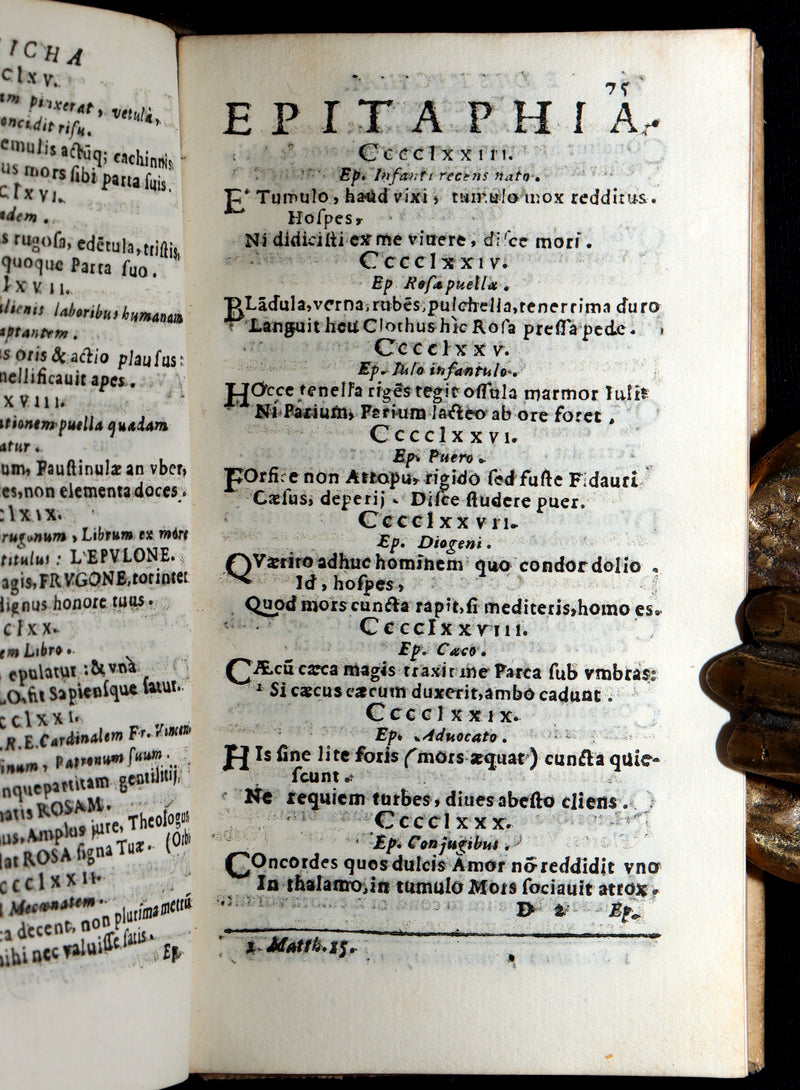 ICHA
clxv.
pinxerat, vetula,
concidit risu.
cachinnis
us mors sibi parta suis.
clxvi.
adem.
s rugosa, edētula, tristis,
quoque Parta suo.
lxvii.
laboribus humanam
aptantem.
s oris & actio plausus:
mellificauit apes.
xviii.
puella quadam
atur.
um, Faustinulæ an vber,
es, non elementa doces.
clxix.
rugonum, Librum ex more
titulus: L'EPVLONE.
agis, FRVGONE, tot intet
dignus honore tuus.
clxx.
em Libro.
epulatur: & vnà
O, fit Sapiensque satur.
cclxxi.
R. E. Cardinalem Fr.
inum, Patronum suum.
nquepartitam gentilitij,
natis ROSAM.
us, Amplus jure, Theologus
lat ROSA signa Tuæ. (Orbi
ccclxxii.
Mecœnatem.
ta decent, non plurima metra
ihi nec valuisse satis.
Ep.
75
EPITAPHIA.
Cccclxxiii.
Ep. Infanti recens nato.
E' Tumulo, haud vixi, tumulo mox redditus.
Hospes,
Ni didicisti ex me viuere, disce mori.
Cccclxxiv.
Ep Rosæ puellæ.
BLādula, verna, rubēs, pulchella, tenerrima duro
Languit heu Clothus hic Rosa pressa pede.
Cccclxxv.
Ep. Iulo infantulo.
HOcce tenella rigēs tegit ossula marmor Iuli:
Ni Parium, Parium lacteo ab ore foret.
Cccclxxvi.
Ep. Puero.
FOrfice non Attopu, rigido sed fuste Fidauri
Cæsus, deperij. Disce studere puer.
Cccclxxvii.
Ep. Diogeni.
QVærito adhuc hominem quo condor dolio.
Id, hospes,
Quod mors cuncta rapit, si mediteris, homo es.
Cccclxxviii.
Ep. Cæco.
CÆcū cæca magis traxit me Parca sub vmbras:
1 Si cæcus cæcum duxerit, ambo cadunt.
Cccclxxix.
Ep. Aduocato.
HIs sine lite foris (mors æquat) cuncta quie-
scunt.
Ne requiem turbes, diues abesto cliens.
Cccclxxx.
Ep. Conjugibus.
COncordes quos dulcis Amor nō reddidit vno
In thalamo, in tumulo Mors sociauit atrox.
D 2 Ep.
1. Matth. 15.